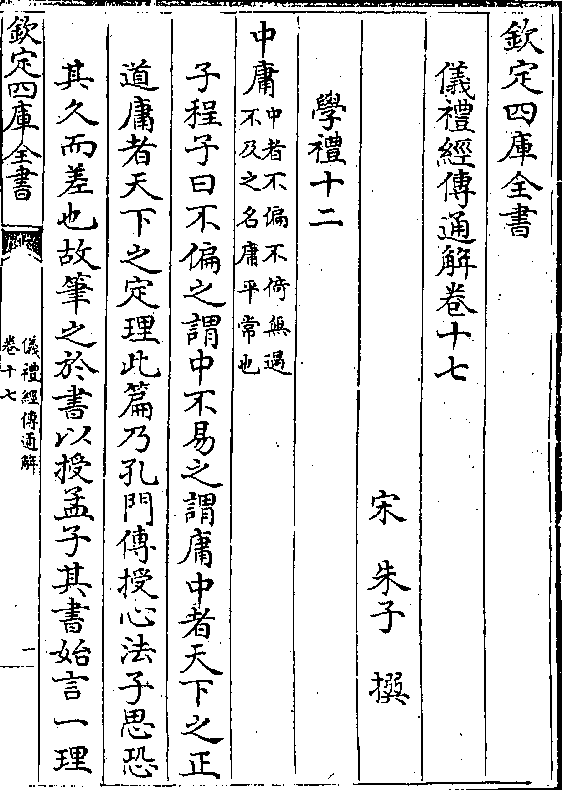 欽定四庫全書
儀禮經傳通解卷十七
宋 朱子 撰
學禮十二
中庸中者不偏不倚無過
不及之名庸平常也
子程子曰不偏之謂中不易之謂庸中者天下之正
道庸者天下之定理此篇乃孔門傳授心法子思恐
其久而差也故筆之於書以授孟子其書始言一理
欽定四庫全書
儀禮經傳通解
卷十七
一